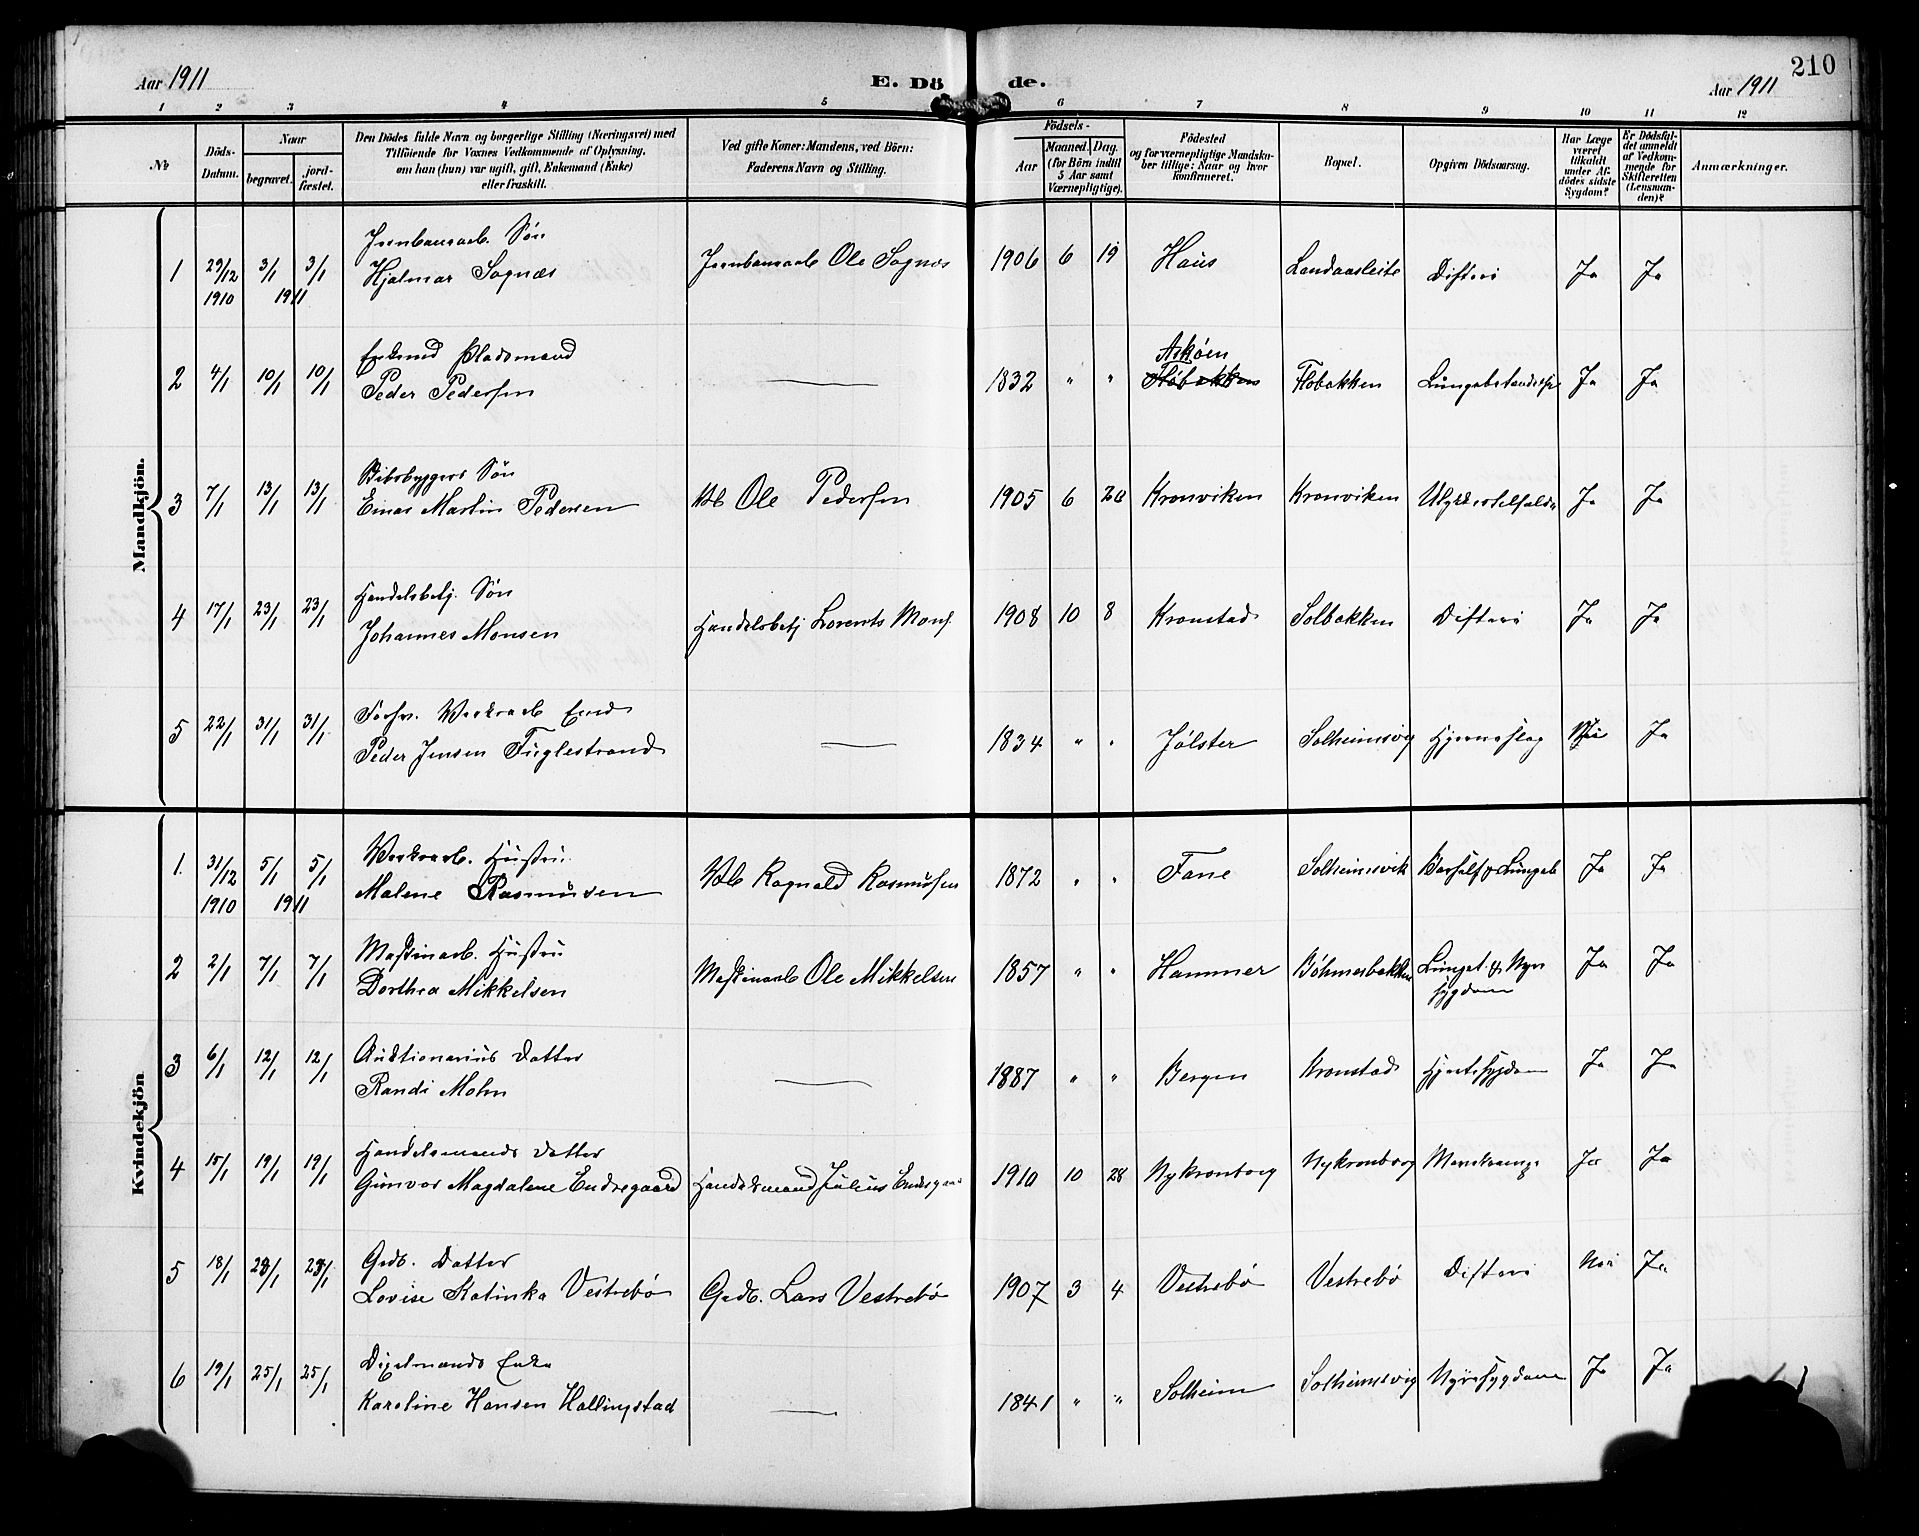 210
Aar 1911
E. Dö
de.
Aar 1911
1 2 3 4 5 6 7 8 9 10 11 12
No
Döds-Datum.
Naar
begravet.
jord-fæstet.
Den Dödes fulde Navn og borgerlige Stilling (Næringsvei) med
Tilföiende for Voxnes Vedkommende af Oplysning,
om han (hun) var ugift, gift, Enkemand (Enke)
eller fraskilt.
Ved gifte Koner: Mandens, ved Börn:
Faderens Navn og Stilling.
Födsels-
Aar
Maaned. Dag.
(for Börn indtil
5 Aar samt
Værnepligtige).
Födested
og for værnepligtige Mandska-
ber tillige: Naar og hvor
konfirmeret.
Bopæl.
Opgiven Dödsaarsag.
Har Læge
været
tilkaldt
under Af-
dödes sidste
Sygdom?
Er Dödsfal-
det anmeldt
af Vedkom-
mende for
Skifteretten
(Lensman-
den)?
Anmærkninger.
Mandkjön.
Jernbanearb. Søn
1 29/12 3/1 3/1 Hjalmar Sognæs Jernbanearb Ole Sognæs 1906 6 19 Haus Landaasleite Difteri Ja Ja
1910 1911
Enkemd Pladsmand Askøen
2 4/1 10/1 10/1 Peder Pedersen — 1832 " " Fløbakken Fløbakken Ja Ja
Søn
3 7/1 13/1 13/1 Einar Martin Pedersen Ole Pedersen 1905 6 20 Kronviken Kronviken Ulykkestilfælde Ja Ja
Handelsbetj. Søn
4 17/1 23/1 23/1 Johannes Monsen Handelsbetj Lorents Mons. 1908 10 8 Kronstad Solbakken Difteri Ja Ja
Forhv. Værksarb Emd
5 22/1 31/1 31/1 Peder Jensen Fuglestrand — 1834 " " Jølster Solheimsvig Hjerneslag Nei Ja
Kvindekjön
Værksarb. Hustru
1. 31/12 5/1 5/1 Malene Rasmussen Vb Ragnald Rasmussen 1872 " " Fane Solheimsvik Ja Ja
1910 1911
Maskinarb. Hustru
2 2/1 7/1 7/1 Dorthea Mikkelsen Maskinarb Ole Mikkelsen 1857 " " Hammer Böhmerbakken Lunget. & Nyre
sygdom Ja Ja
Auktionarius Datter
3 6/1 12/1 12/1 Randi Mohn — 1887 " " Bergen Kronstad Hjertesygdom Ja Ja
Handelsmands Datter
4 15/1 19/1 19/1 Gunvor Magdalene Endregaard Handelsmand Julius Endregaa 1910 10 28 Nykronborg Nykronborg Ja Ja
Grdb. Datter
5 18/1 23/1 23/1 Lovise Katinka Vestrebø Grdb. Lars Vestrebø 1907 3 4 Vestrebø Vestrebø Difteri Nei Ja
Enke
6 19/1 25/1 25/1 Karoline Hansen Hallingstad — 1841 " " Solheim Solheimsvig Nyresygdom Ja Ja